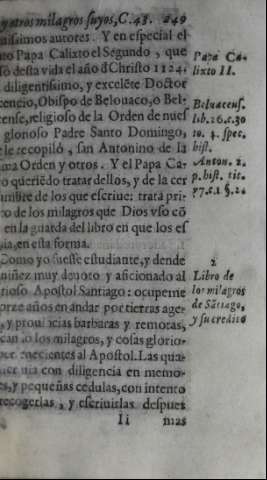 y otros milagros suyos, C. 48. 249
uissimos autores. Y en especial el
nto Papa Calixto el Segundo, que
só desta vida el año đ Christo 1124.
diligentissimo, y excelẽte Doctor
cencio, Obispo de Belouaco, o Bel-
cense, religioso de la Orden de nuef
glorioso Padre Santo Domingo,
le recopiló, san Antonino de la
ma Orden y otros. Y el Papa Ca-
o queriẽdo tratar dellos, y de la cer
umbre de los que escriue: trata pri-
ro de los milagros que Dios vso cõ
en la guarda del libro en que los es
ia, en esta forma.
Como yo fuesse estudiante, y dende
niñez muy deuoto y aficionado al
rioso Apostol Santiago: ocupeme
orze años en andar por tierras age-
, y prouincias barbaras y remotas,
can o los milagros, y cosas glorio-
per enecientes al Apostol. Las qua-
uia con diligencia en memo-
s, y pequeñas cedulas, con intento
recogerlas, y escriuirlas despues
Ii mas
Papa Ca-
lixto II.
Beluacens.
lib. 26. c. 30
to. 4. spec.
hist.
Anton. 2.
p. hist. tit.
17. c. 1 §. 24
2
Libro de
los milagros
de Sãtiago,
y su credito